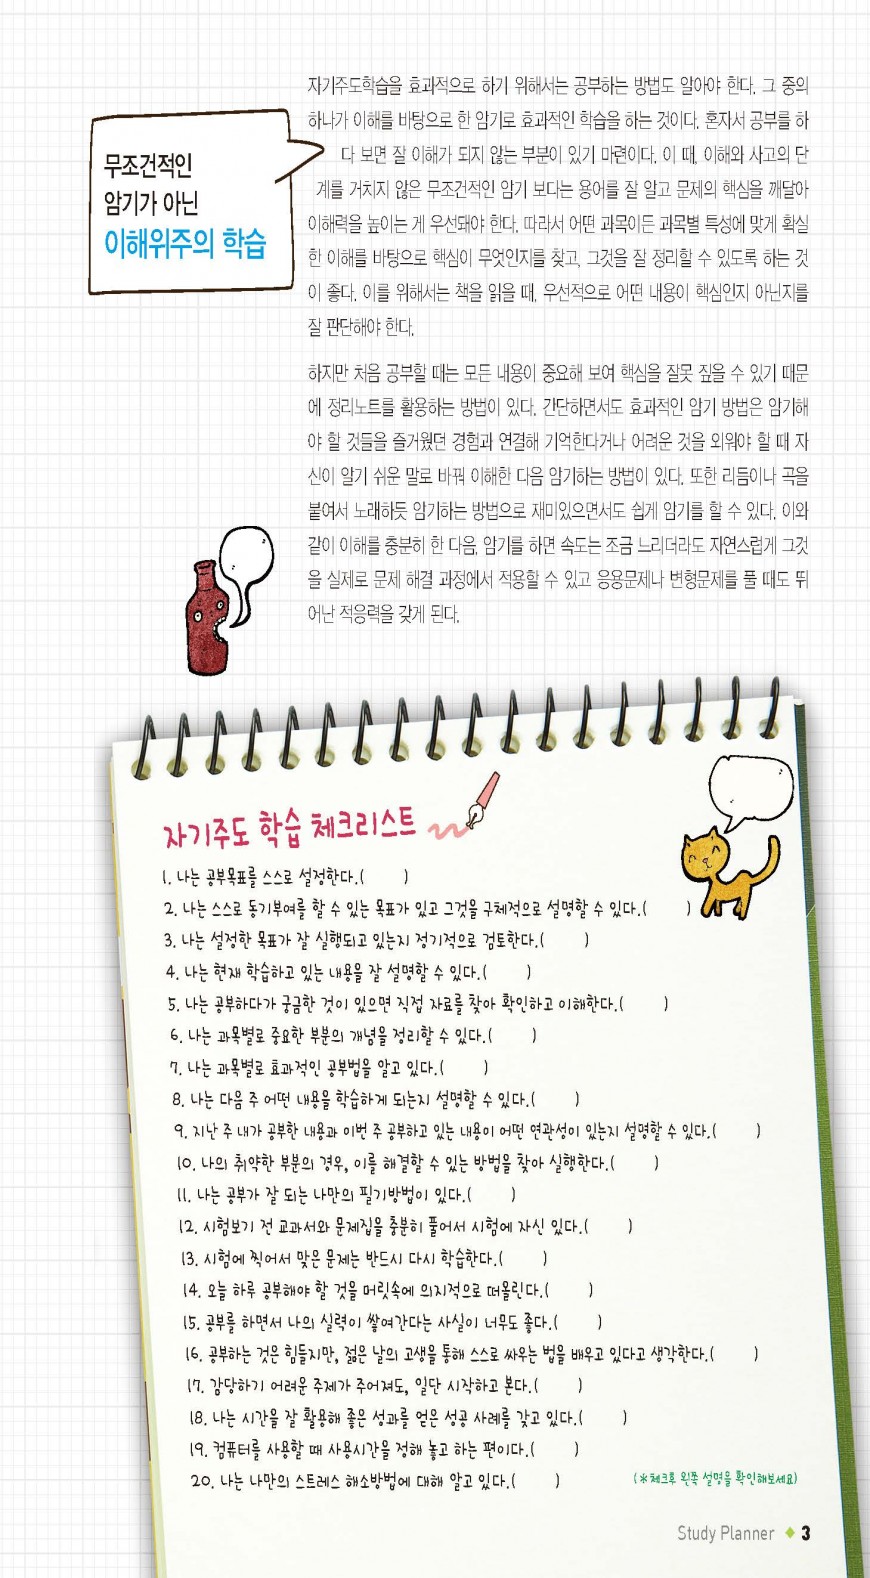 무조건적인
암기가 아닌
이해위주의 학습
자기주도학습을 효과적으로 하기 위해서는 공부하는 방법도 알아야 한다. 그 중의
하나가 이해를 바탕으로 한 암기로 효과적인 학습을 하는 것이다. 혼자서 공부를 하
다 보면 잘 이해가 되지 않는 부분이 있기 마련이다. 이 때, 이해와 사고의 단
계를 거치지 않은 무조건적인 암기 보다는 용어를 잘 알고 문제의 핵심을 깨달아
이해력을 높이는 게 우선돼야 한다. 따라서 어떤 과목이든 과목별 특성에 맞게 확실
한 이해를 바탕으로 핵심이 무엇인지를 찾고, 그것을 잘 정리할 수 있도록 하는 것
이 좋다. 이를 위해서는 책을 읽을 때, 우선적으로 어떤 내용이 핵심인지 아닌지를
잘 판단해야 한다.
하지만 처음 공부할 때는 모든 내용이 중요해 보여 핵심을 잘못 짚을 수 있기 때문
에 정리노트를 활용하는 방법이 있다. 간단하면서도 효과적인 암기 방법은 암기해
야 할 것들을 즐거웠던 경험과 연결해 기억한다거나 어려운 것을 외워야 할 때 자
신이 알기 쉬운 말로 바꿔 이해한 다음 암기하는 방법이 있다. 또한 리듬이나 곡을
붙여서 노래하듯 암기하는 방법으로 재미있으면서도 쉽게 암기를 할 수 있다. 이와
같이 이해를 충분히 한 다음, 암기를 하면 속도는 조금 느리더라도 자연스럽게 그것
을 실제로 문제 해결 과정에서 적용할 수 있고 응용문제나 변형문제를 풀 때도 뛰
어난 적응력을 갖게 된다.
자기주도 학습 체크리스트
1. 나는 공부목표를 스스로 설정한다.(      )
2. 나는 스스로 동기부여를 할 수 있는 목표가 있고 그것을 구체적으로 설명할 수 있다.(      )
3. 나는 설정한 목표가 잘 실행되고 있는지 정기적으로 검토한다.(      )
4. 나는 현재 학습하고 있는 내용을 잘 설명할 수 있다.(      )
5. 나는 공부하다가 궁금한 것이 있으면 직접 자료를 찾아 확인하고 이해한다.(      )
6. 나는 과목별로 중요한 부분의 개념을 정리할 수 있다.(      )
7. 나는 과목별로 효과적인 공부법을 알고 있다.(      )
8. 나는 다음 주 어떤 내용을 학습하게 되는지 설명할 수 있다.(      )
9. 지난 주 내가 공부한 내용과 이번 주 공부하고 있는 내용이 어떤 연관성이 있는지 설명할 수 있다.(      )
10. 나의 취약한 부분의 경우, 이를 해결할 수 있는 방법을 찾아 실행한다.(      )
11. 나는 공부가 잘 되는 나만의 필기방법이 있다.(      )
12. 시험보기 전 교과서와 문제집을 충분히 풀어서 시험에 자신 있다.(      )
13. 시험에 찍어서 맞은 문제는 반드시 다시 학습한다.(      )
14. 오늘 하루 공부해야 할 것을 머릿속에 의지적으로 떠올린다.(      )
15. 공부를 하면서 나의 실력이 쌓여간다는 사실이 너무도 좋다.(      )
16. 공부하는 것은 힘들지만, 젊은 날의 고생을 통해 스스로 싸우는 법을 배우고 있다고 생각한다.(      )
17. 감당하기 어려운 주제가 주어져도, 일단 시작하고 본다.(      )
18. 나는 시간을 잘 활용해 좋은 성과를 얻은 성공 사례를 갖고 있다.(      )
19. 컴퓨터를 사용할 때 사용시간을 정해 놓고 하는 편이다.(      )
20. 나는 나만의 스트레스 해소방법에 대해 알고 있다.(      )
(*체크후 왼쪽 설명을 확인해보세요)
Study Planner ◆ 3